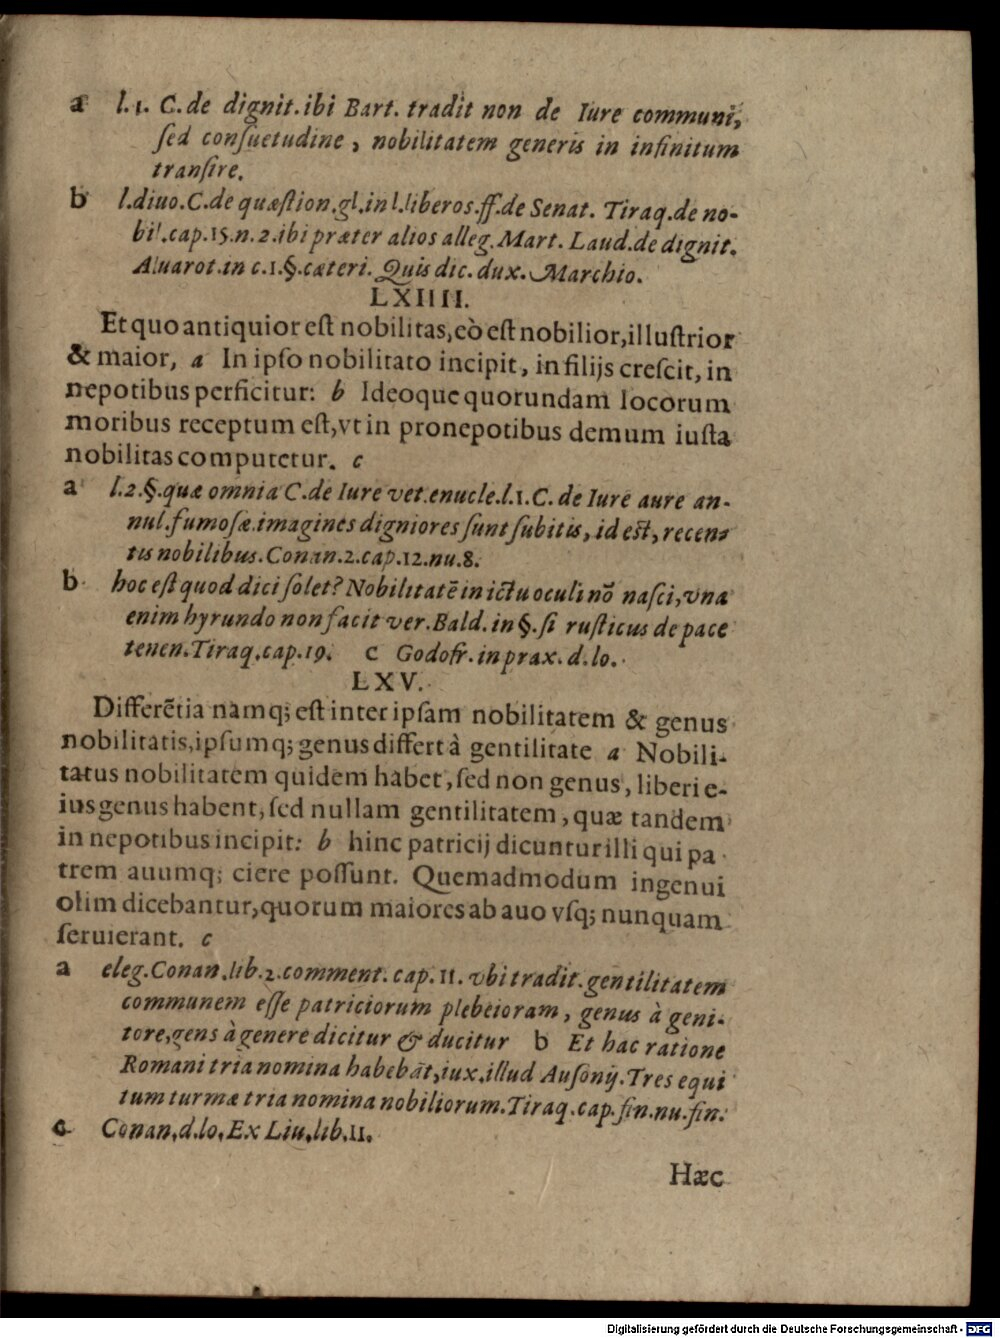 a l.1. C.de dignit.ibi Bart. tradit non de Iure communi,
ſed conſuetudine, nobilitatem generis in infinitum
tranſire.
b l.diuo.C.de quæſtion.gl.in l.liberos.ff.de Senat. Tiraq.de no-
bil.cap.15.n.2.ibi præter alios alleg.Mart. Laud.de dignit.
Aluarot.in c.1.§.cæteri. Quis dic. dux. Marchio.
LXIIII.
Et quo antiquior eſt nobilitas, eò eſt nobilior, illuſtrior
& maior, a In ipſo nobilitato incipit, in filijs creſcit, in
nepotibus perficitur: b Ideoque quorundam locorum
moribus receptum eſt, vt in pronepotibus demum iuſta
nobilitas computetur. c
a l.2.§.quæ omnia C.de Iure vet.enucle.l.1.C. de Iure aure an-
nul.fumoſæ.imagines digniores ſunt ſubitis, id eſt, recen-
tis nobilibus.Conan.2.cap.12.nu.8.
b hoc eſt quod dici ſolet? Nobilitatē in ictu oculi nō naſci, vna
enim hyrundo non facit ver.Bald.in §.ſi ruſticus de pace
tenen.Tiraq.cap.19. c Godofr.in prax. d.lo.
LXV.
Differētia namq; eſt inter ipſam nobilitatem & genus
nobilitatis, ipſumq; genus differt à gentilitate a Nobili-
tatus nobilitatem quidem habet, ſed non genus, liberi e-
ius genus habent, ſed nullam gentilitatem, quæ tandem
in nepotibus incipit: b hinc patricij dicuntur illi qui pa
trem auumq; ciere poſſunt. Quemadmodum ingenui
olim dicebantur, quorum maiores ab auo vſq; nunquam
ſeruierant. c
a eleg.Conan.lib.2.comment. cap.11. vbi tradit.gentilitatem
communem eſſe patriciorum plebeioram, genus à geni-
tore, gens à genere dicitur & ducitur b Et hac ratione
Romani tria nomina habebāt, iux.illud Auſonij.Tres equi
tum turmæ tria nomina nobiliorum.Tiraq.cap.fin.nu.fin.
c Conan.d.lo.Ex Liu.lib.11.
Hæc
Digitalisierung gefördert durch die Deutsche Forschungsgemeinschaft - DFG